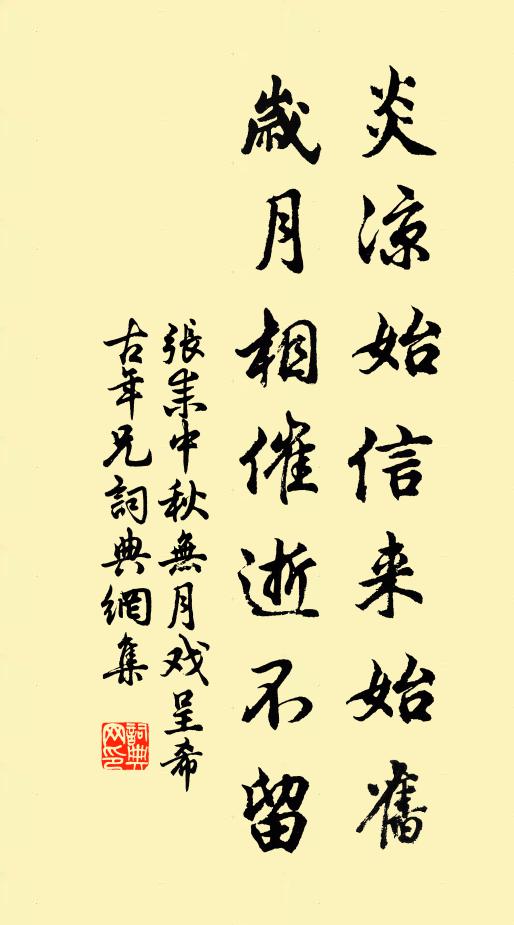 炎涼始信来始舊
歲月相催逝不留
張耒中秋無月戏呈希
古年兄詞典網集
詞典网印